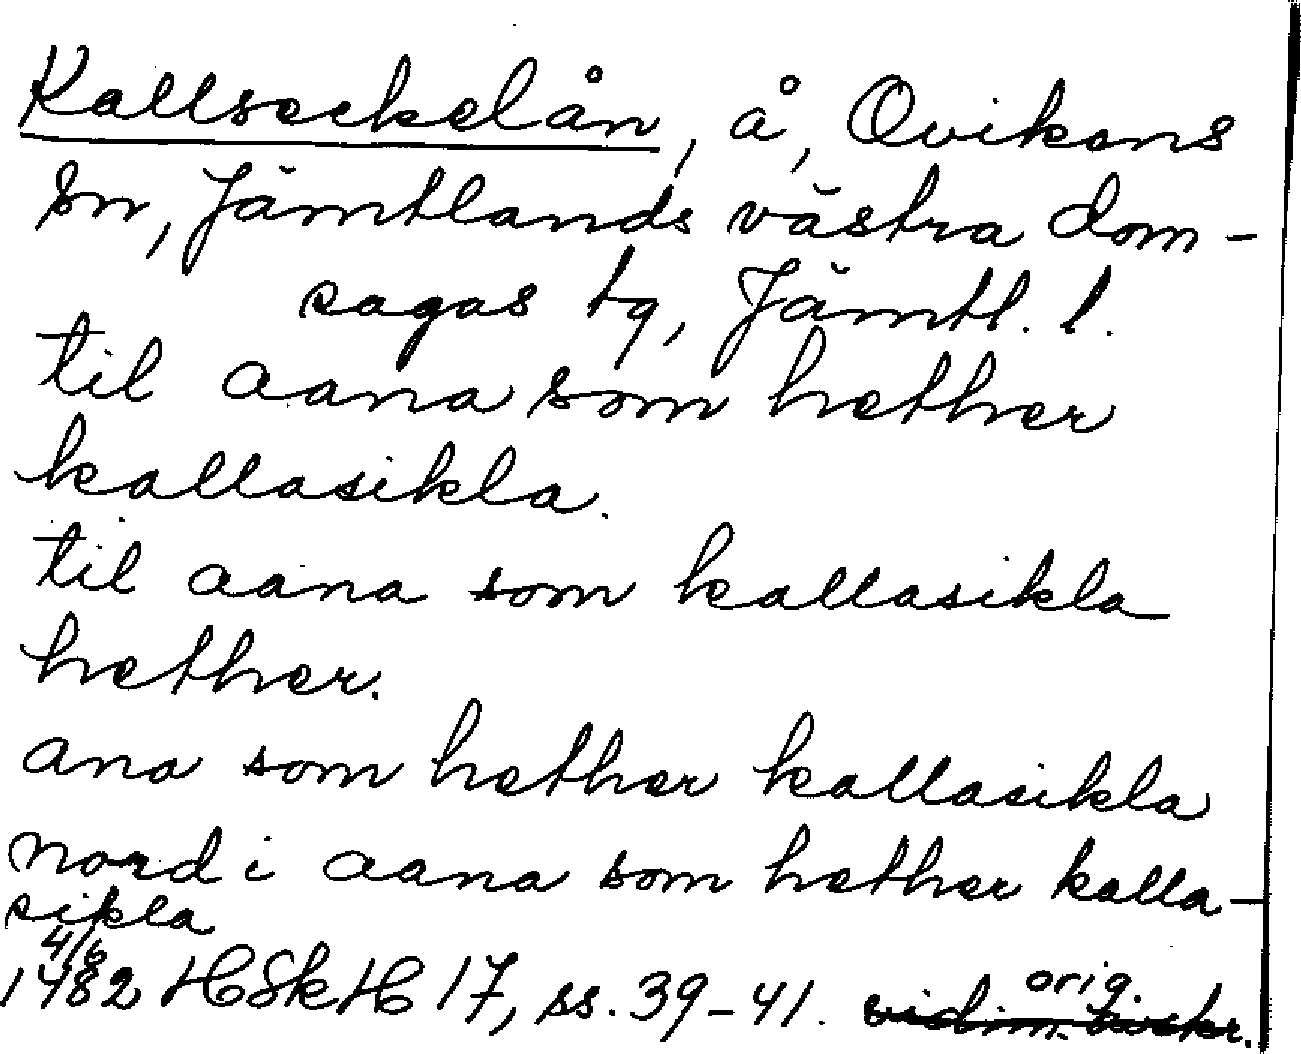 Kallseckelån, å, Ovikens
sn, Jämtlands västra dom-
sagas tg, Jämtl. l.
til aana som hether
kallasikla.
til aana som kallasikla
hether.
ana som hether kallasikla
nord i aana som hether kalla-
sikla
4/6
1482 HSkH 17, ss. 39-41. orig.